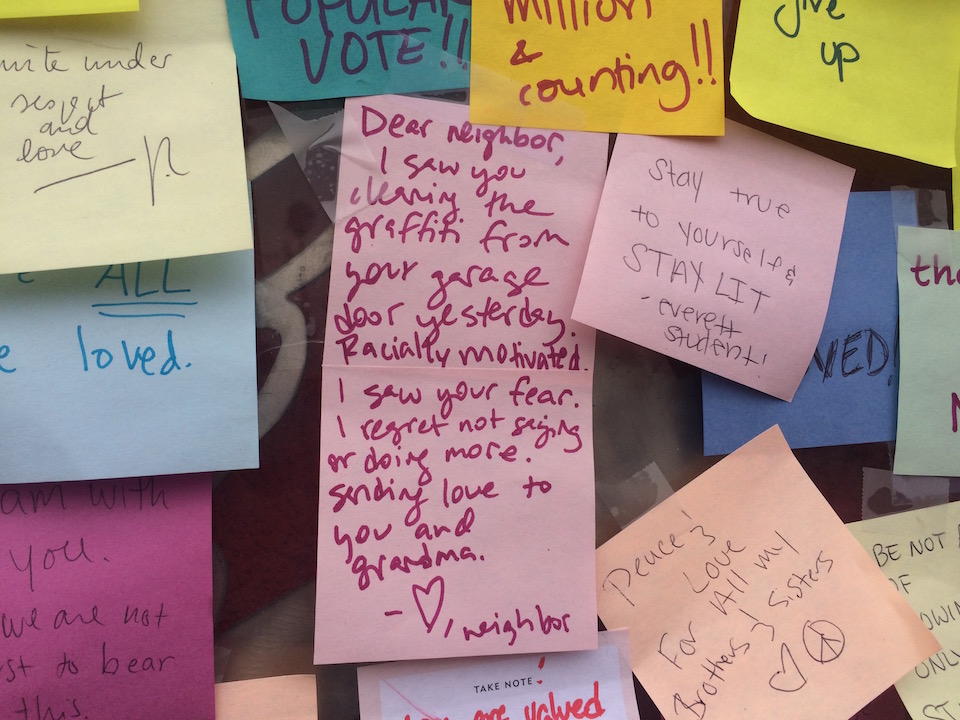 POPULAR
VOTE!!
million
&
counting!!
give
up
unite under
respect
and
love
ALL
loved.
Dear neighbor,
I saw you
cleaning the
graffiti from
your garage
door yesterday.
Racially motivated.
I saw your fear.
I regret not saying
or doing more.
sending love to
you and
grandma.
- ♡, neighbor
Stay true
to yourself &
STAY LIT
- everett
student!
am with
you.
we are not
to bear
this.
Peace &
Love
For All my
Brothers & Sisters
BE NOT
OF
ONLY
TAKE NOTE!
are valued